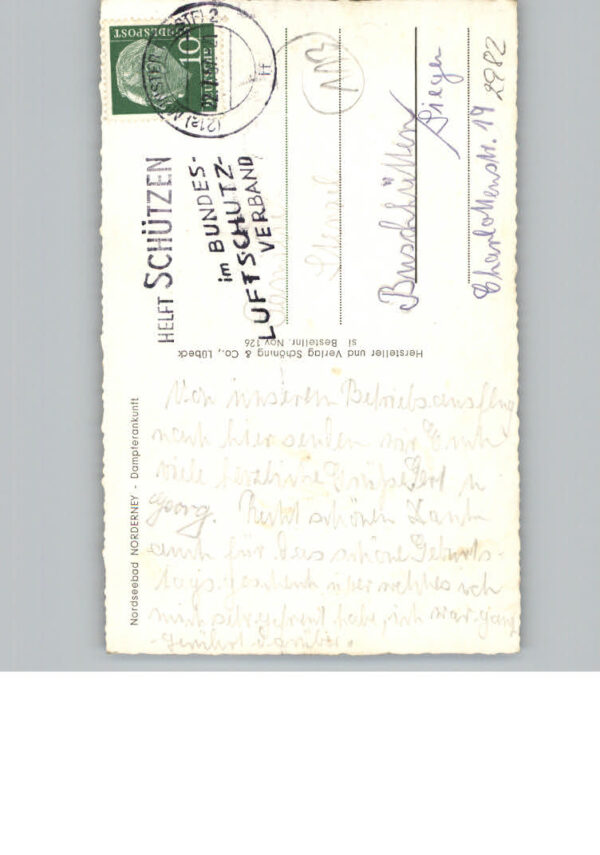 Nordseebad NORDERNEY - Dampferankunft
Von unseren Betriebsausflug
nach hier senden wir Euch
viele herzliche Grüße Gert u
Georg. Recht schönen Dank
auch für das schöne Geburts-
tagsgeschenk über welches ich
mich sehr gefreut habe, ich war ganz
gerührt darüber.
Hersteller und Verlag Schöning & Co., Lübeck
si Bestellnr. Nov 126
HELFT SCHÜTZEN
im BUNDES-
LUFTSCHUTZ-
VERBAND
BUNDESPOST
10
(21a) MÜNSTER
Stenzel
Buschhütten
Siegen
Charlottenstr. 19
2982